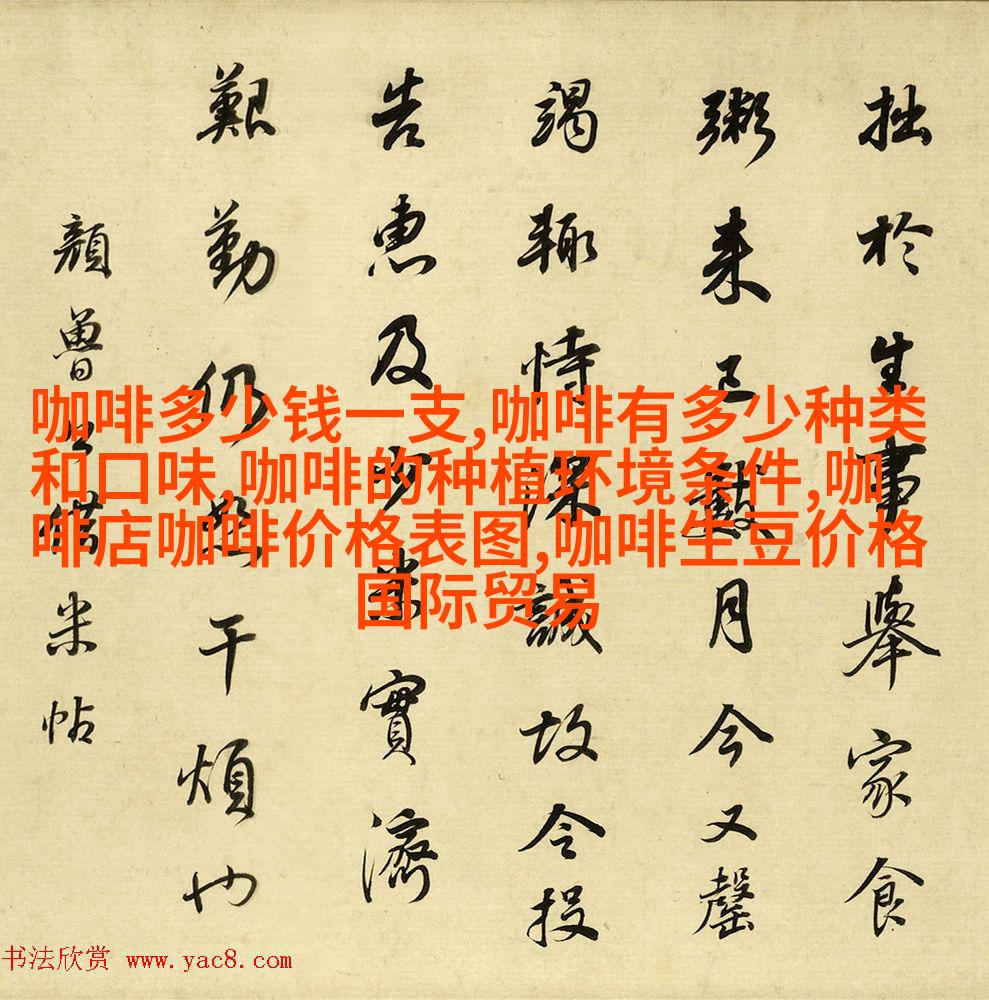 拙於生事舉家食
粥来已數月今又罄
竭輙恃深誠故令投
告惠及少米實濟
艱勤仍恕干煩也
顏魯公借米帖
咖啡多少钱一支,咖啡有多少种类
和口味,咖啡的种植环境条件,咖
啡店咖啡价格表图,咖啡生豆价格
国际贸易
书法欣赏 www.yac8.com